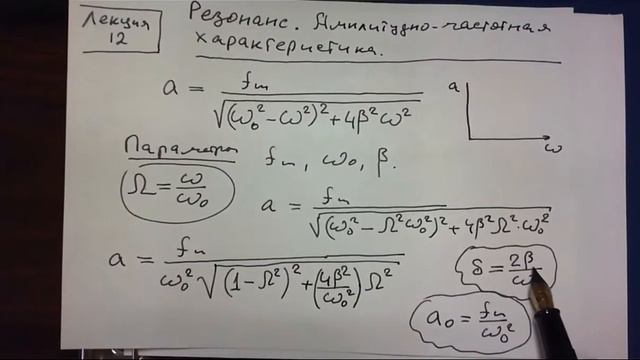 Лекция 12
Резонанс. Амплитудно-частотная
характеристика.
a = fₘ / √((ω₀² - ω²)² + 4β²ω²)
a
ω
Параметры fₘ, ω₀, β.
Ω = ω/ω₀
a = fₘ / √((ω₀² - Ω²ω₀²)² + 4β²Ω²·ω₀²)
a = fₘ / ω₀²√((1 - Ω²)² + (4β²/ω₀²)Ω²)
δ = 2β/ω
a₀ = fₘ/ω₀²